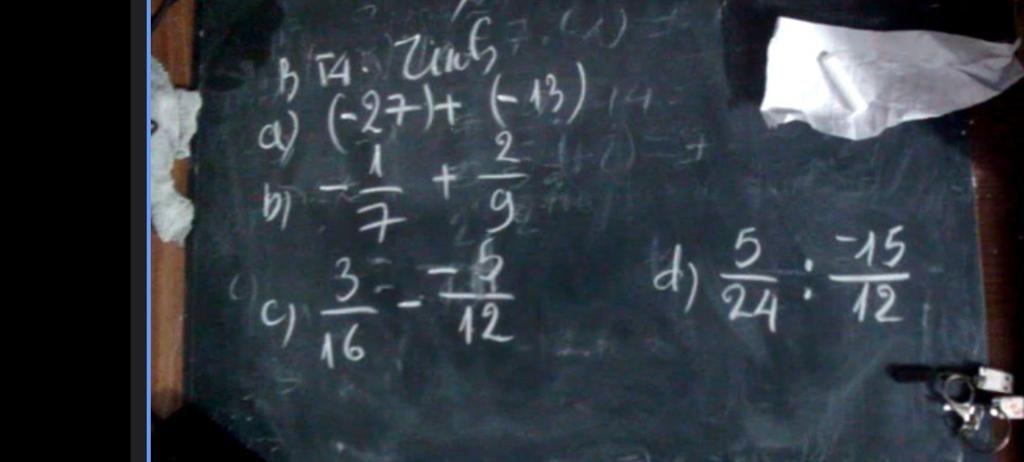 BT4. Tính
a) (-27) + (-13)
b) - 1/7 + 2/9
c) 3/16 - -5/12
d) 5/24 : -15/12